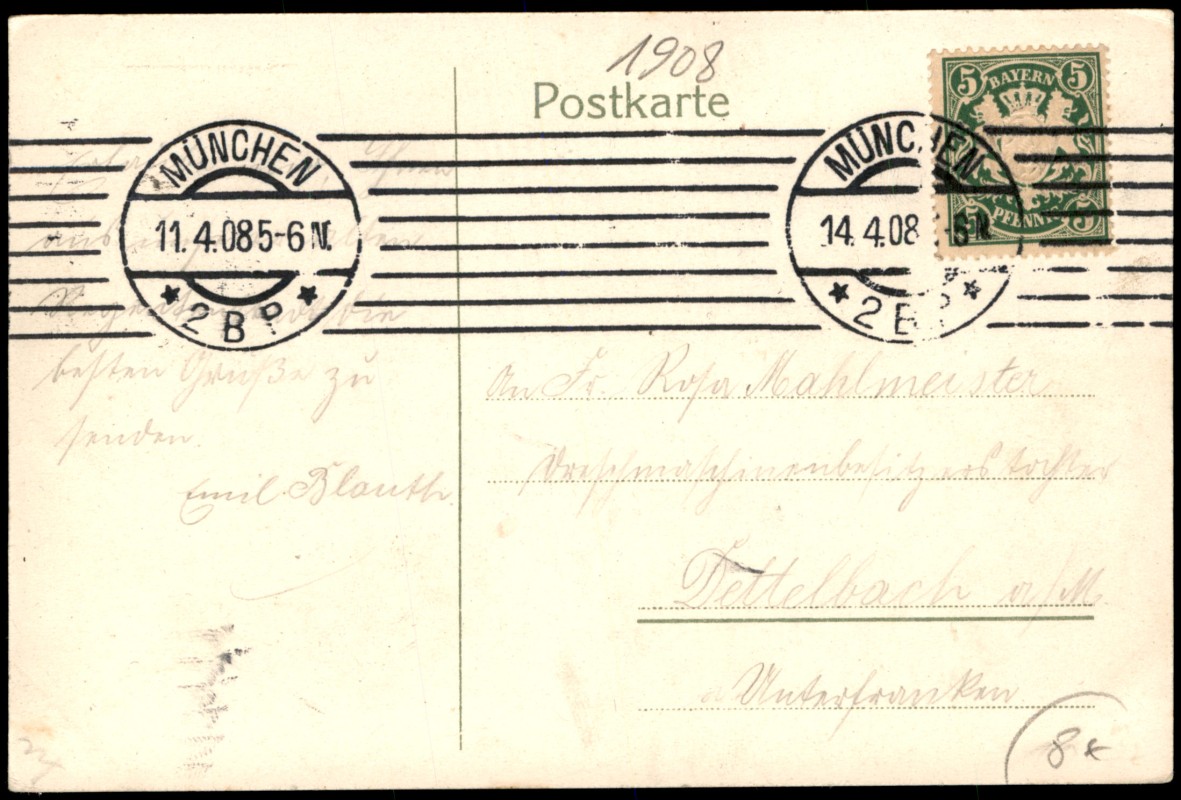 1908
Postkarte
5 BAYERN 5
PFENNIG 5
MÜNCHEN
11.4.08 5-6 N.
* 2 B P *
MÜNCHEN
14.4.08 -6 N.
* 2 B P *
Ihnen
aus
die
besten Grüße zu
senden.
Emil Blauth
An Fr. Rosa Mahlmeister
Dreschmaschinenbesitzerstochter
Dettelbach a/M.
Unterfranken
8x